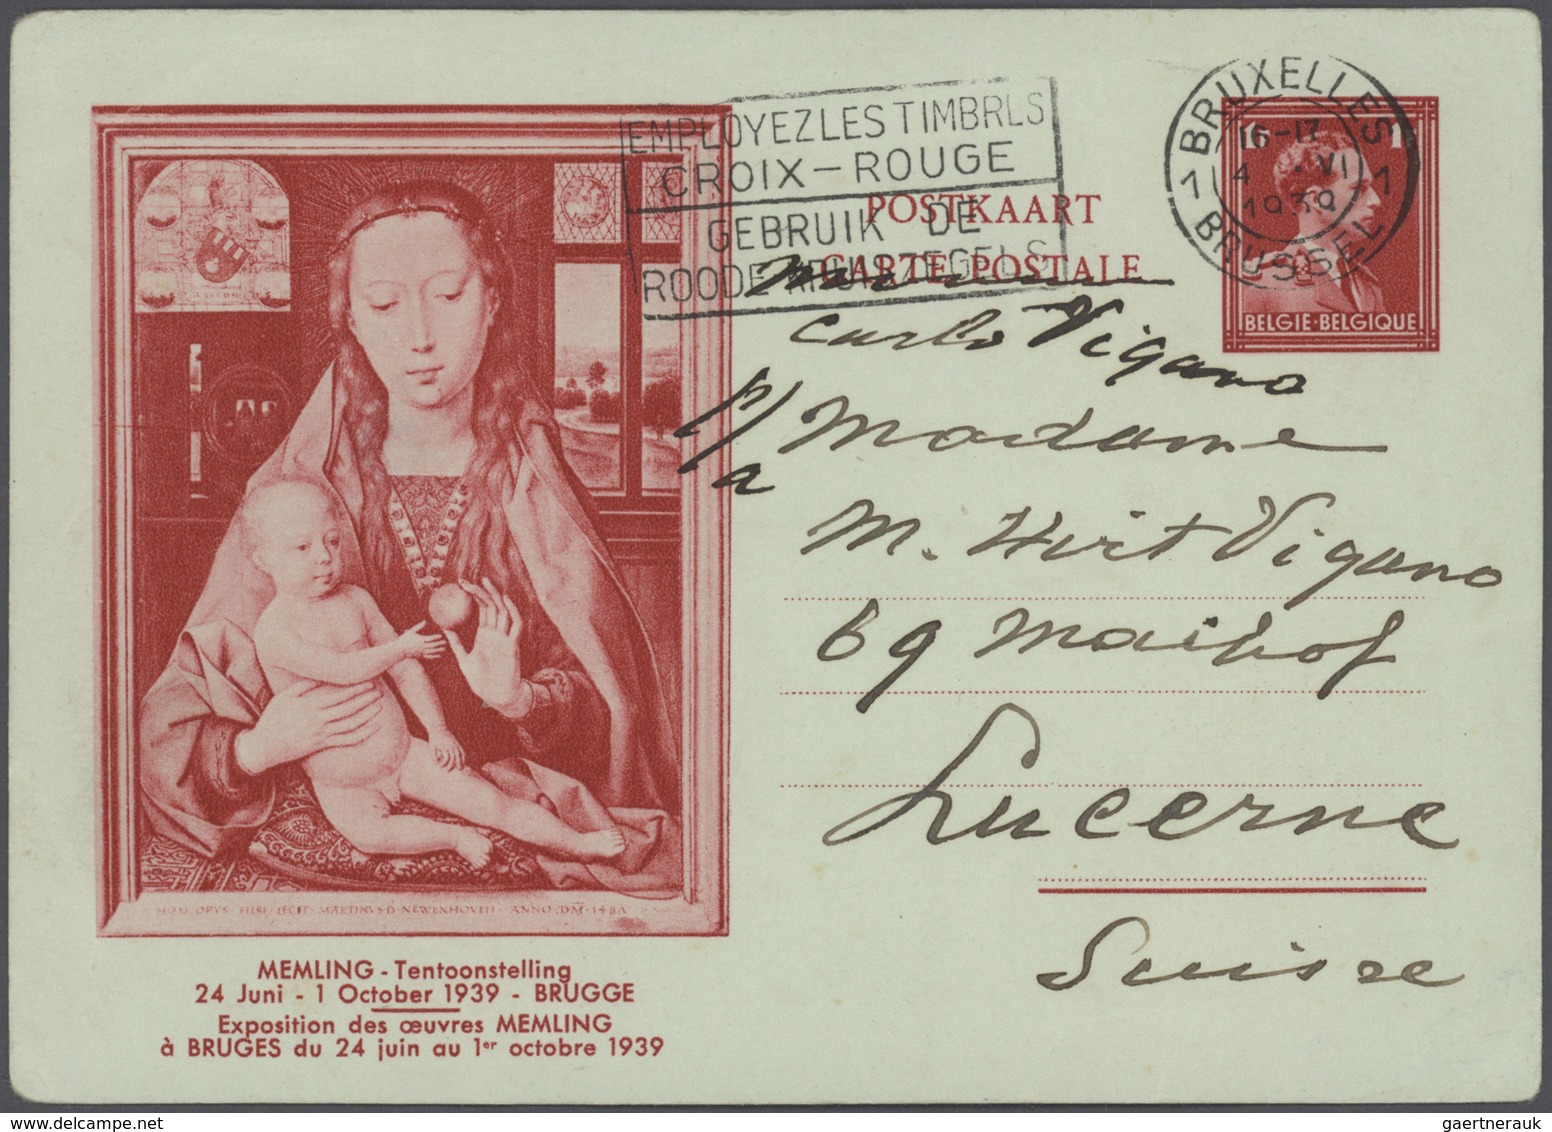 EMPLOYEZ LES TIMBRLS
CROIX-ROUGE
GEBRUIK DE
ROODE KRUISZEGELS
BRUXELLES
16-17
4 VI
1939
1 1
BRUSSEL
1 1
BELGIE·BELGIQUE
POSTKAART
CARTE POSTALE
Carlo Vigano
p/a Madame
M. Hirt Vigano
69 Maihof
Lucerne
Suisse
HOC OPVS FIERI FECIT MARTINVS D NEWENHOVEN ANNO DM 148A
MEMLING - Tentoonstelling
24 Juni - 1 October 1939 - BRUGGE
Exposition des œuvres MEMLING
à BRUGES du 24 juin au 1er octobre 1939
gaertnerauk